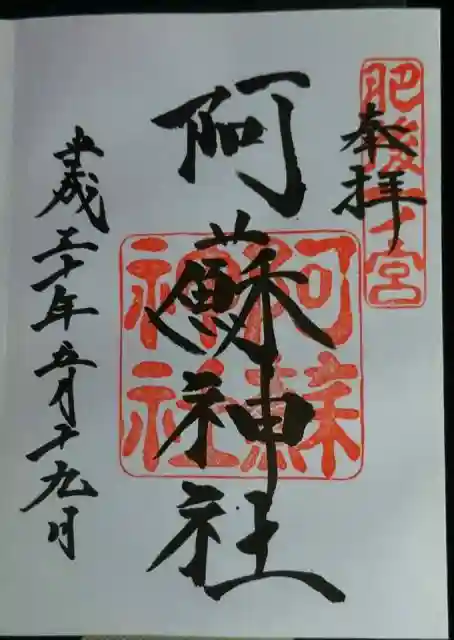 奉拝
肥後一ノ宮
阿蘇神社
阿蘇神社
平成三十年五月十九日